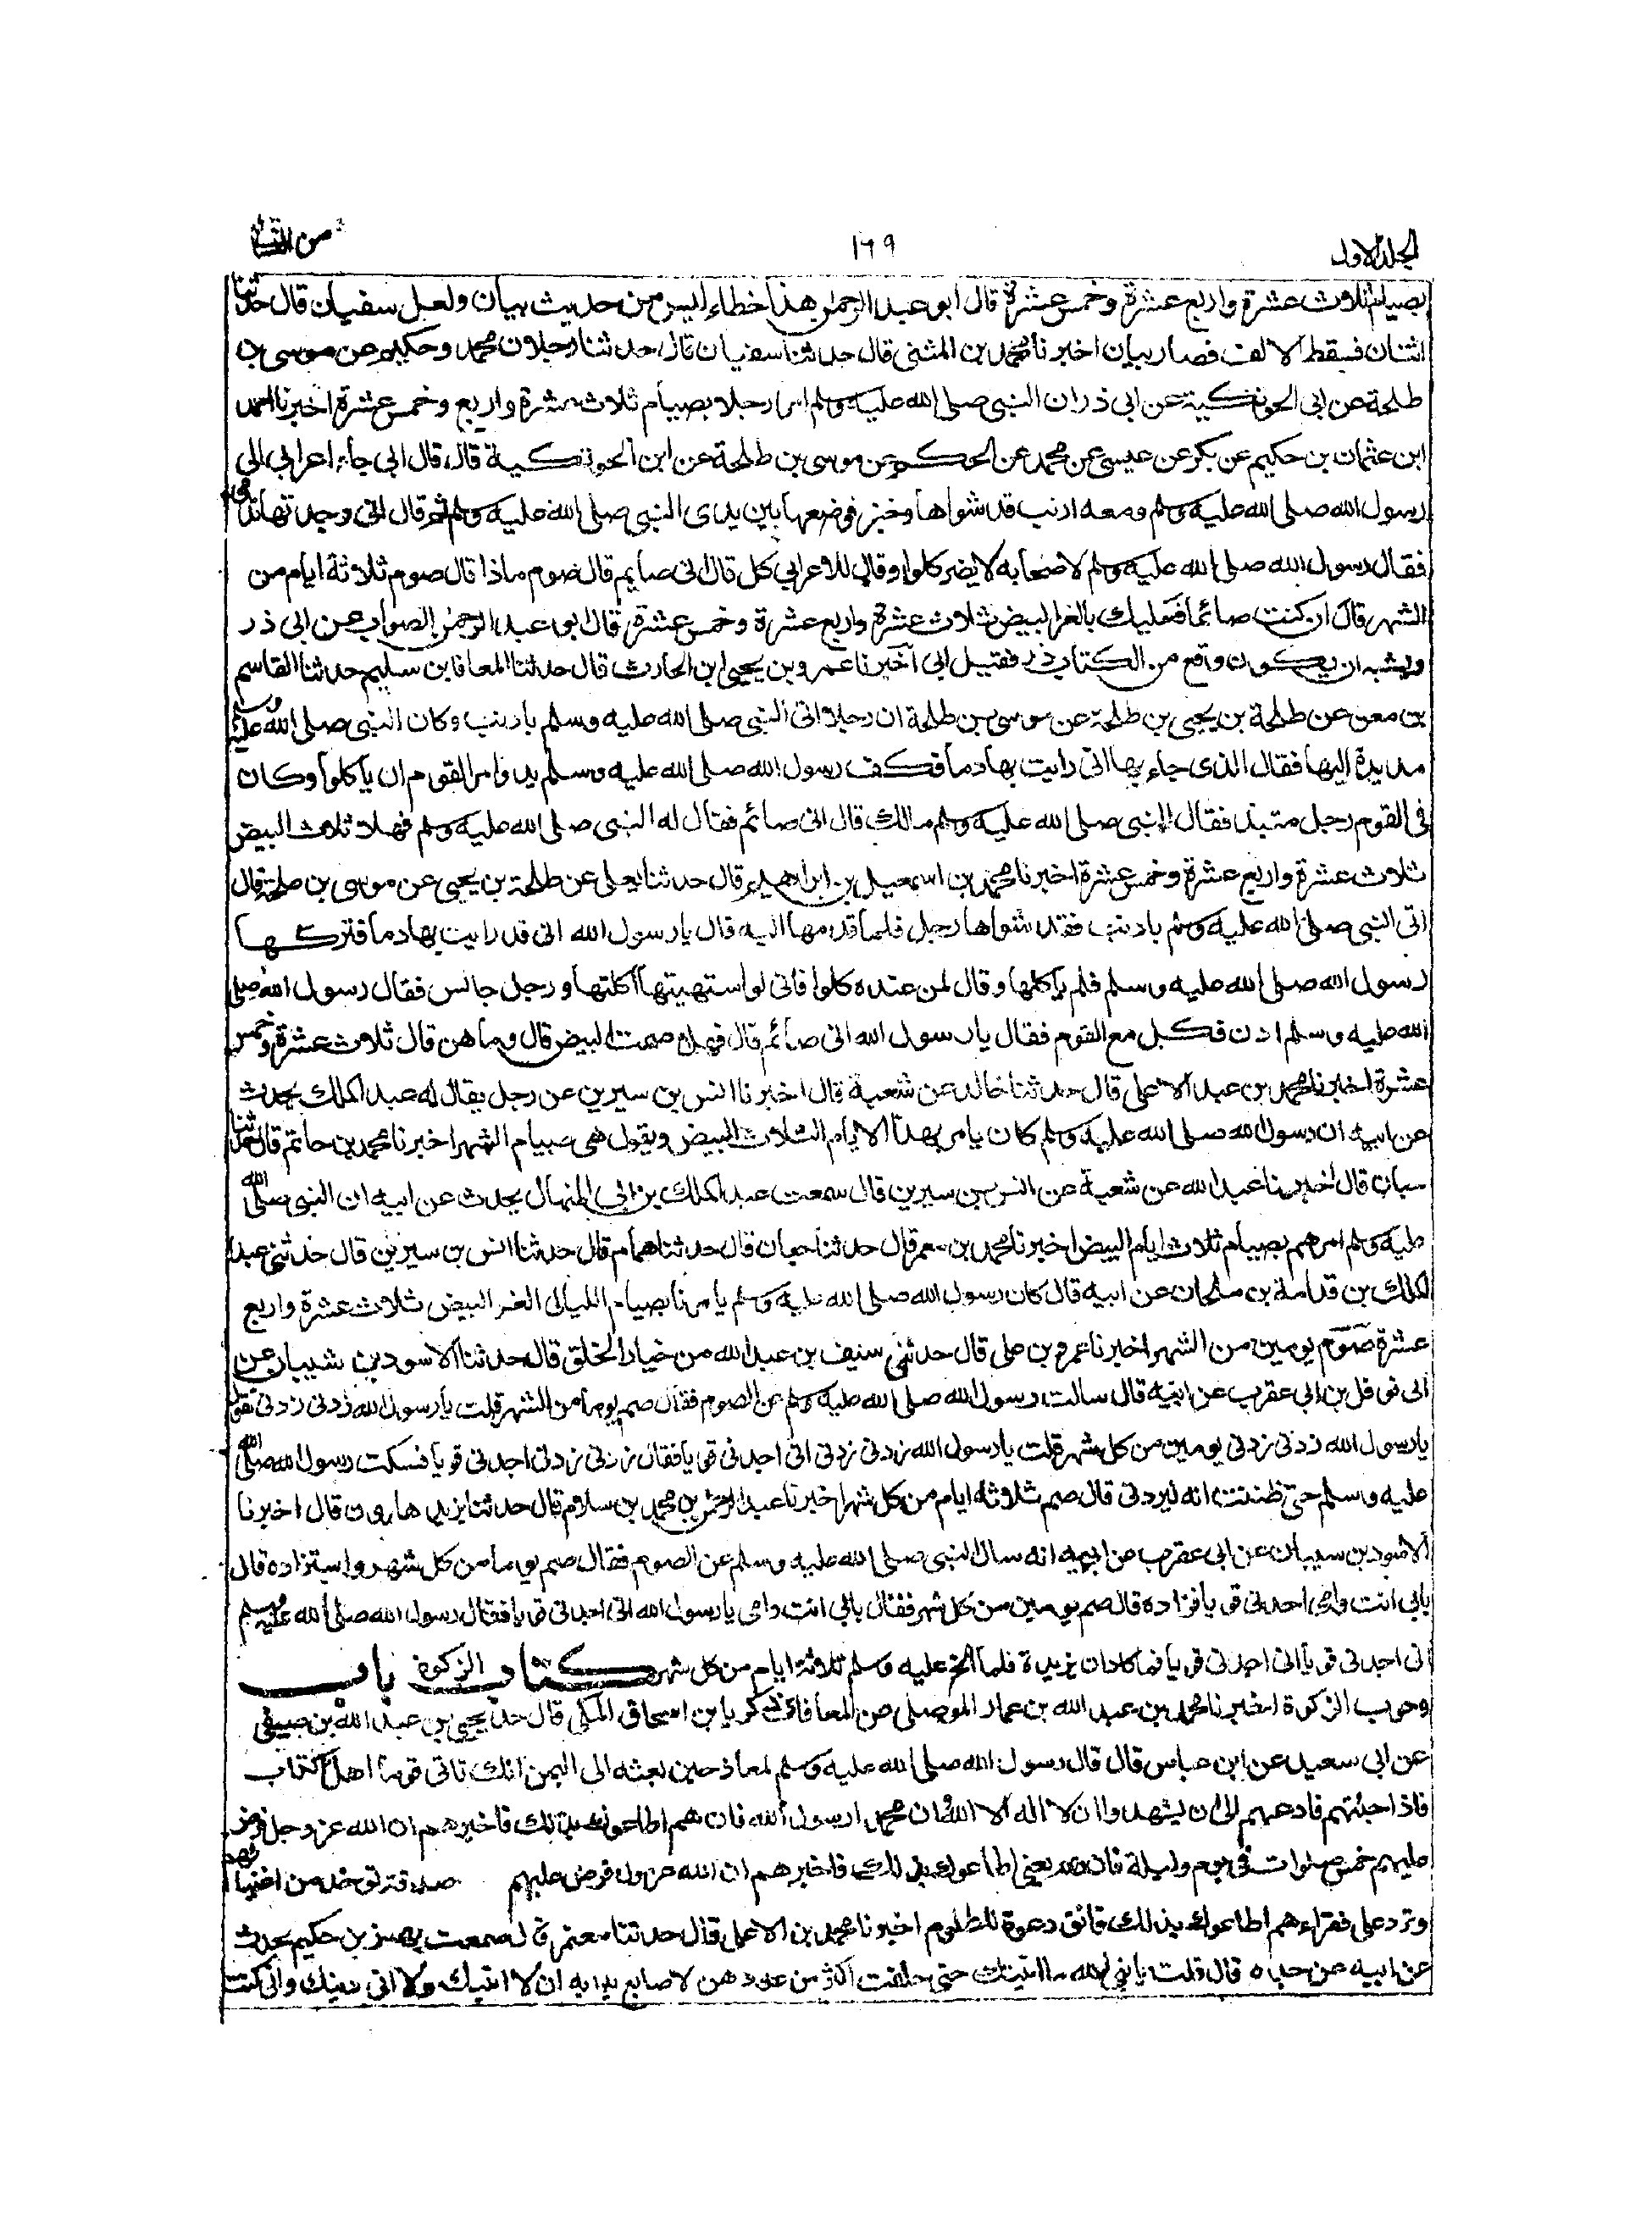 المجلد الاول
١٦٩
من النسائي
بصيام ثلاث عشرة واربع عشرة وخمس عشرة قال ابو عبد الرحمن هذا خطاء ليس من حديث بيان ولعل سفيان قال حدثنا
اثنان فسقط الالف فصار بيان اخبرنا محمد بن المثنى قال حدثنا سفيان قال حدثنا رجلان محمد وحكيم عن موسى بن
طلحة عن ابن الحوتكية عن ابي ذر ان النبي صلى الله عليه وسلم امر رجلا بصيام ثلاث عشرة واربع وخمس عشرة اخبرنا احمد
ابن عثمان بن حكيم عن بكر عن عيسى عن محمد عن الحكم عن موسى بن طلحة عن ابن الحوتكية قال قال ابي جاء اعرابي الى
رسول الله صلى الله عليه وسلم ومعه ارنب قد شواها وخبز فوضعها بين يدى النبي صلى الله عليه وسلم ثم قال اني وجدتها تدمى
فقال رسول الله صلى الله عليه وسلم لاصحابه لا يضر كلوا وقال للاعرابي كل قال اني صايم قال صوم ماذا قال صوم ثلاثة ايام من
الشهر قال ان كنت صائما فعليك بالغر البيض ثلاث عشرة واربع عشرة وخمس عشرة قال ابو عبد الرحمن الصواب عن ابي ذر
ويشبه ان يكون وقع من الكتاب ذر فقيل ابي اخبرنا عمرو بن يحيى ابن الحارث قال حدثنا المعافا بن سليم حدثنا القاسم
بن معن عن طلحة بن يحيى بن طلحة عن موسى بن طلحة ان رجلا اتى النبي صلى الله عليه وسلم بارنب وكان النبي صلى الله عليه وسلم
مد يده اليها فقال الذى جاء بها اني رايت بها دما فكف رسول الله صلى الله عليه وسلم يده وامر القوم ان ياكلوا وكان
في القوم رجل منتبذ فقال النبي صلى الله عليه وسلم مالك قال اني صائم فقال له النبي صلى الله عليه وسلم فهلا ثلاث البيض
ثلاث عشرة واربع عشرة وخمس عشرة اخبرنا محمد بن اسمعيل بن ابراهيم قال حدثنا يعلى عن طلحة بن يحيى عن موسى بن طلحة قال
اتى النبي صلى الله عليه وسلم بارنب فقد شواها رجل فلما قدمها اليه قال يا رسول الله اني قد رايت بها دما فتركها
رسول الله صلى الله عليه وسلم فلم ياكلها وقال لمن عنده كلوا فاني لو اشتهيتها اكلتها ورجل جالس فقال رسول الله صلى
الله عليه وسلم ادن فكل مع القوم فقال يا رسول الله اني صائم قال فهلا صمت البيض قال وما هن قال ثلاث عشرة وخمس
عشرة اخبرنا محمد بن عبد الاعلى قال حدثنا خالد عن شعبة قال اخبرنا انس بن سيرين عن رجل يقال له عبد الملك يحدث
عن ابيه ان رسول الله صلى الله عليه وسلم كان يامر بهذا الايام الثلاث البيض ويقول هي صيام الشهر اخبرنا محمد بن حاتم قال حدثنا
حبان قال اخبرنا عبد الله عن شعبة عن انس بن سيرين قال سمعت عبد الملك بن ابي المنهال يحدث عن ابيه ان النبي صلى الله
عليه وسلم امرهم بصيام ثلاث ايام البيض اخبرنا محمد بن معمر قال حدثنا حبان قال حدثنا همام قال حدثنا انس بن سيرين قال حدثني عبد
الملك بن قدامة بن ملحان عن ابيه قال كان رسول الله صلى الله عليه وسلم يامرنا بصيام الليالي الغر البيض ثلاث عشرة واربع
عشرة صوم يومين من الشهر اخبرنا عمرو بن على قال حدثني سنيف بن عبد الله من خيار الخلق قال حدثنا الاسود بن شيبان عن
ابى نوفل بن ابي عقرب عن ابيه قال سالت رسول الله صلى الله عليه وسلم عن الصوم فقال صم يوما من الشهر قلت يا رسول الله زدنى زدنى تقول
يا رسول الله زدنى زدنى يومين من كل شهر قلت يا رسول الله زدنى زدنى اني اجدنى قويا فقال زدنى زدنى اجدنى قويا فسكت رسول الله صلى الله
عليه وسلم حتى ظننت انه ليردنى قال صم ثلاثة ايام من كل شهر اخبرنا عبد الرحمن بن محمد بن سلام قال حدثنا يزيد هارون قال اخبرنا
الاسود بن شيبان عن ابي عقرب عن ابيه انه سال النبي صلى الله عليه وسلم عن الصوم فقال صم يوما من كل شهر واستزاده قال
بابي انت وامي اجدني قويا فزاده قال صم يومين من كل شهر فقال بابي انت وامي يا رسول الله اني اجدني قويا فقال رسول الله صلى الله عليه وسلم
اني اجدني قويا اني اجدني قويا فما كاد ان يزيده فلما الخ عليه وسلم ثلاثة ايام من كل شهر كتاب الزكوة باب
وجوب الزكوة اخبرنا محمد بن عبد الله بن عمار الموصلي عن المعافا عن زكريا بن اسحاق المكي قال حدثنا يحيى بن عبد الله بن صيفي
عن ابي سعيد عن ابن عباس قال قال رسول الله صلى الله عليه وسلم لمعاذ حين بعثه الى اليمن انك تاتي قوما اهل كتاب
فاذا جئتهم فادعهم الى ان يشهدوا ان لا اله الا الله وان محمدا رسول الله فان هم اطاعوك بذلك فاخبرهم ان الله عز وجل فرض
عليهم خمس صلوات في يوم وليلة فان هم يعني اطاعوك بذلك فاخبرهم ان الله عز وجل فرض عليهم صدقة توخذ من اغنيائهم
وترد على فقراءهم اطاعوك بذلك فاتق دعوة المظلوم اخبرنا محمد بن الاعلى قال حدثنا معتمر قال سمعت بهز بن حكيم يحدث
عن ابيه عن جده قال قلت يا نبي الله ما اتيتك حتى حلفت اكثر من عددهن لاصابع يديه ان لا اتيك ولا اتى دينك واني كنت